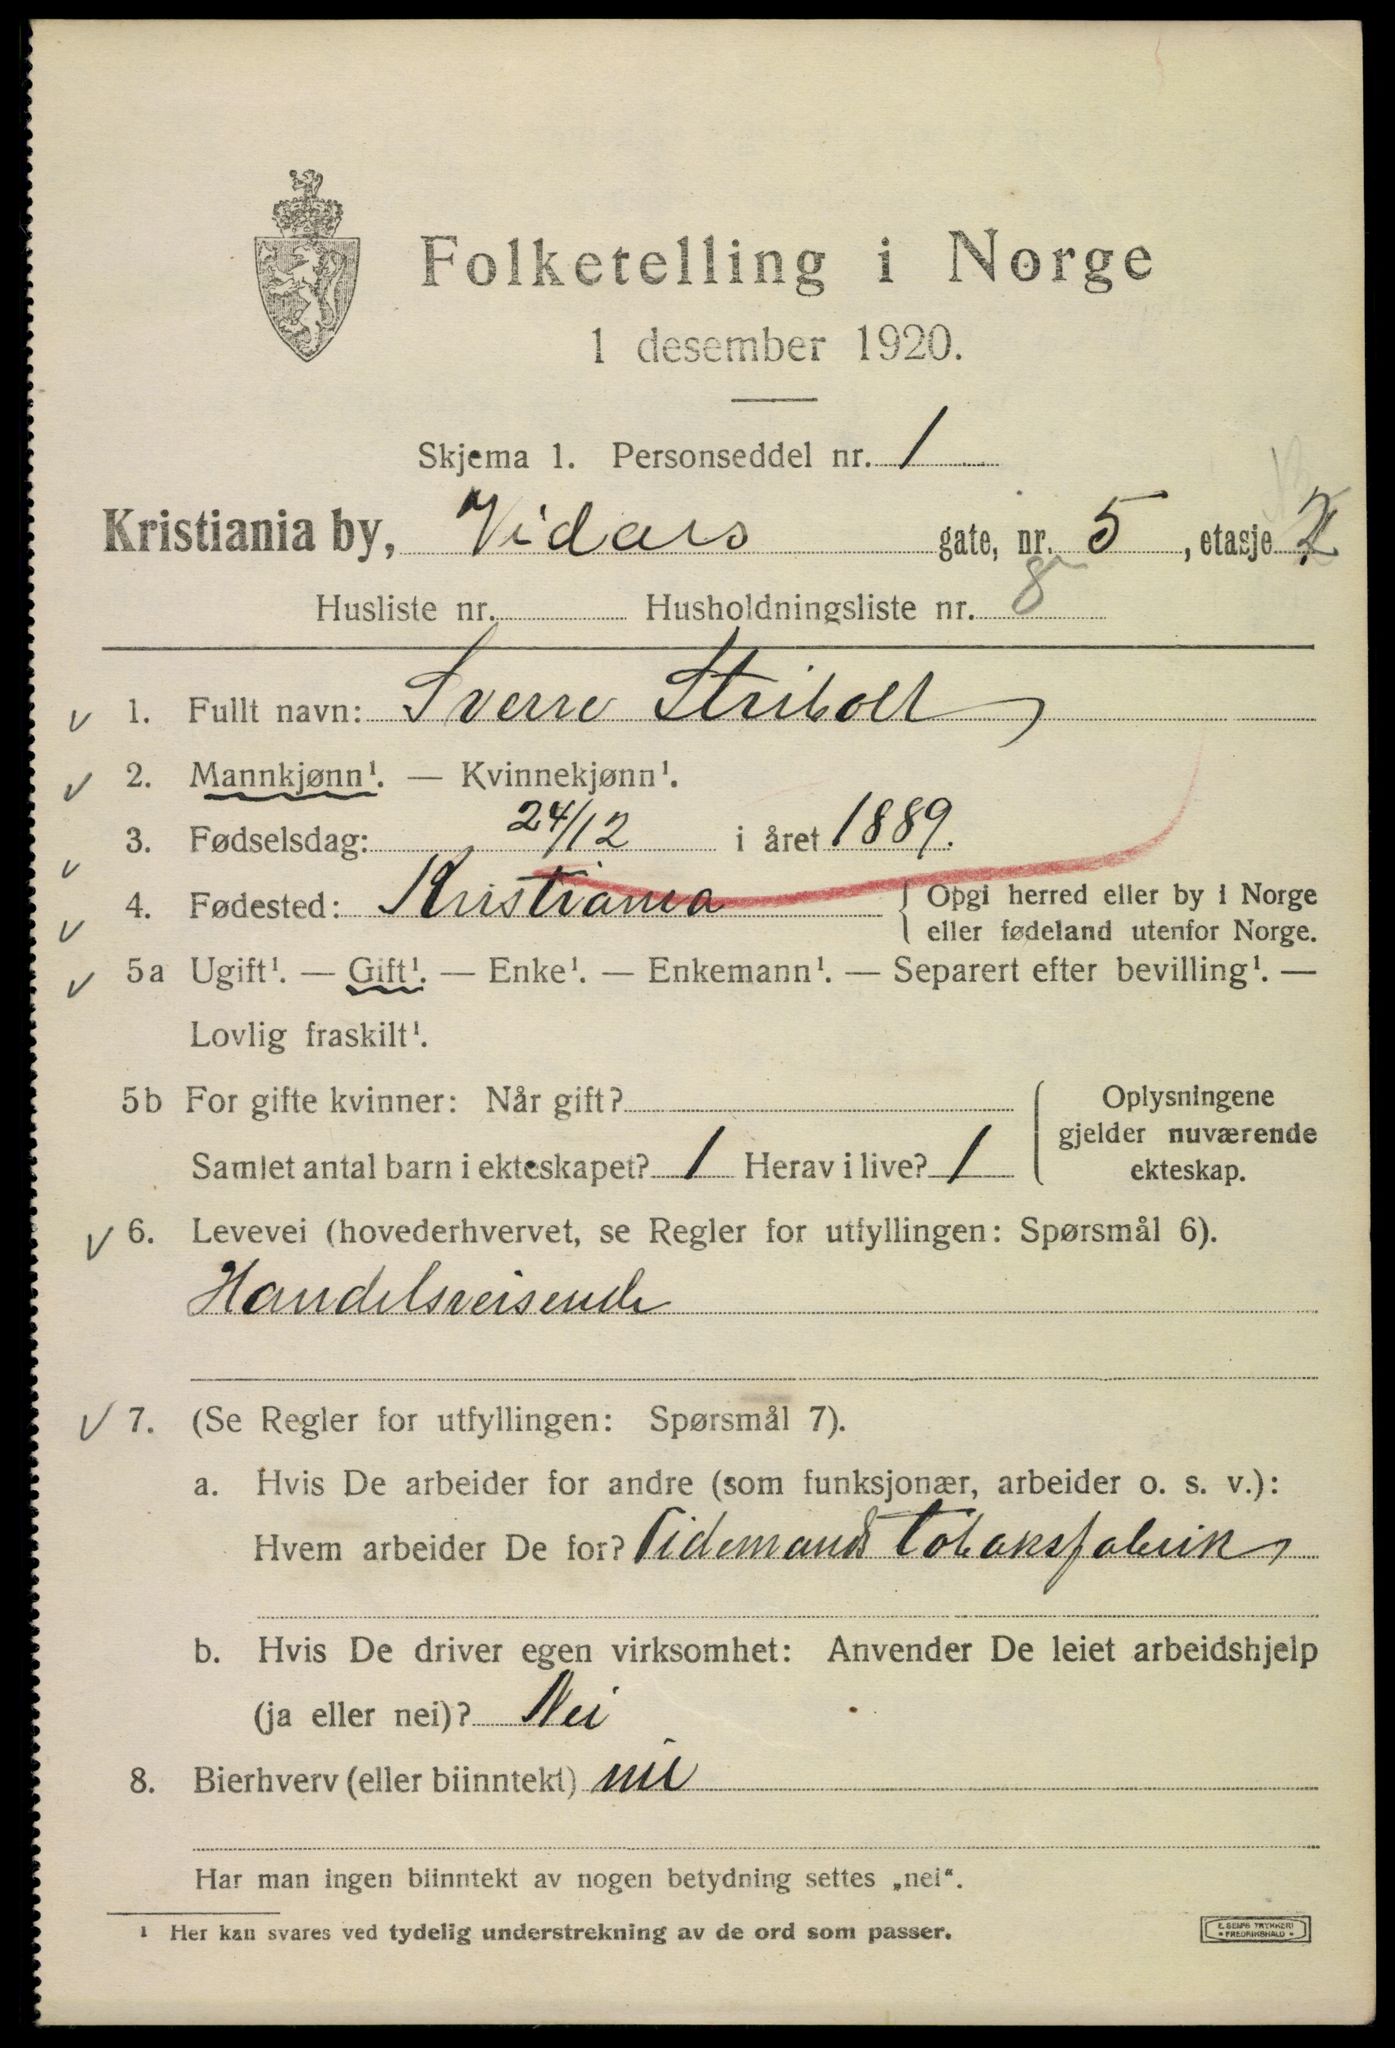 Folketelling i Norge
1 desember 1920.
Skjema 1. Personseddel nr. 1
Kristiania by, Vidars gate, nr. 5, etasje
Husliste nr. Husholdningsliste nr. 8
1. Fullt navn: Sverre Stribolt
2. Mannkjønn¹. — Kvinnekjønn¹.
3. Fødselsdag: 24/12 i året 1889.
4. Fødested: Kristiania { Opgi herred eller by i Norge
eller fødeland utenfor Norge.
5a Ugift¹. — Gift¹. — Enke¹. — Enkemann¹. — Separert efter bevilling¹. —
Lovlig fraskilt¹.
5b For gifte kvinner: Når gift? { Oplysningene
gjelder nuværende
Samlet antal barn i ekteskapet? 1 Herav i live? 1 ekteskap.
6. Levevei (hovederhvervet, se Regler for utfyllingen: Spørsmål 6).
Handelsreisende
7. (Se Regler for utfyllingen: Spørsmål 7).
a. Hvis De arbeider for andre (som funksjonær, arbeider o. s. v.):
Hvem arbeider De for? Tidemands tobaksfabrik
b. Hvis De driver egen virksomhet: Anvender De leiet arbeidshjelp
(ja eller nei)? Nei
8. Bierhverv (eller biinntekt) nei
Har man ingen biinntekt av nogen betydning settes „nei“.
¹ Her kan svares ved tydelig understrekning av de ord som passer.
E. SEMS TRYKKERI
• FREDRIKSHALD •